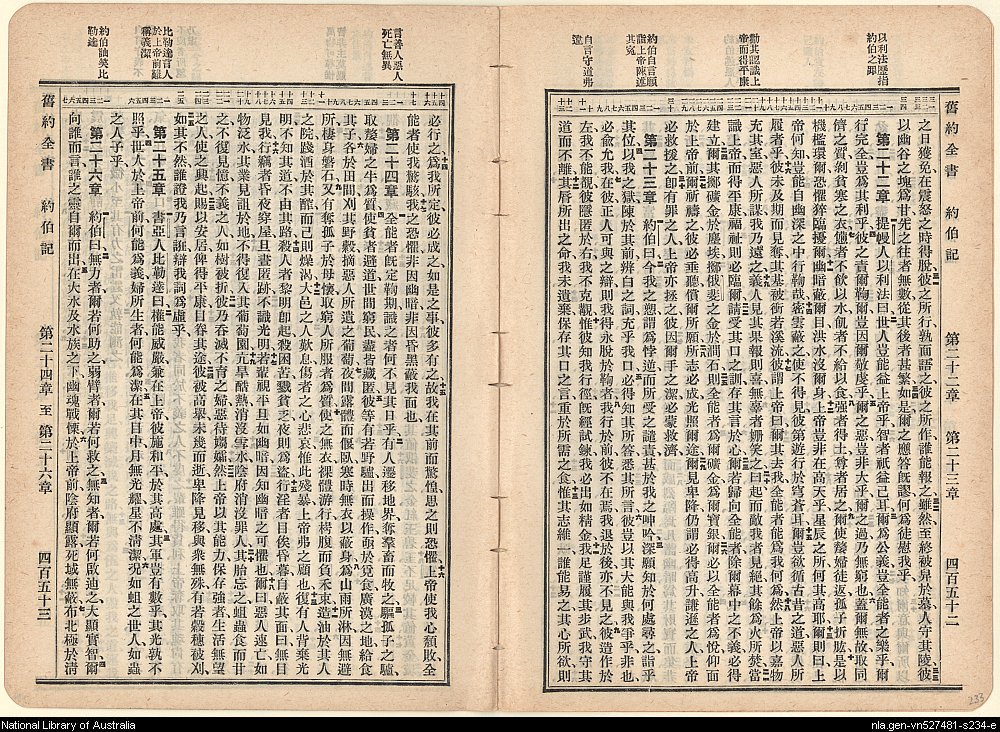 舊約全書 約伯記 第二十二章 第二十三章 四百五十二
以利法歷指
約伯之罪
勸其認識上
帝而得平康
約伯自言願
詣上帝陳述
其冤
自言守道弗
違
之日獲免在震怒之時得脫彼之所行孰面語之彼之所作誰能報之雖然至終被舁於墓人守其陵彼
以幽谷之塊為甘先之往者無數從其後者甚繁如是爾之應答旣謬何為徒慰我乎
第二十二章 提幔人以利法曰世人豈能益上帝乎智者祇益己耳爾為公義豈全能者之樂乎爾
行完全豈為其利乎彼之責爾鞫爾豈因爾敬虔乎爾之惡豈非大乎爾之過乃無窮也蓋爾無故取同
儕之質剝貧寒之衣憊者不飲以水飢者不給以食強者得土尊者居之爾使嫠婦徒返孤子折肱是以
機檻環爾恐懼猝臨擾爾幽暗蔽爾目洪水沒爾身上帝豈非在高天乎星辰之所何其高耶爾則曰上
帝何知豈能自幽深之中行鞫哉密雲蔽之使不得見彼第遊行於穹蒼耳爾豈欲循古昔之道惡人所
履者乎彼未及期而見奪其基被衝若溪流彼謂上帝曰爾其去我全能者為我何為然上帝以嘉物
充其室惡人所謀我乃遠之義人見其果報則喜無辜者姍笑之曰起而敵我者見絕其餘為火所焚當
識上帝而得平康福祉則必臨爾請受其口之訓存其言於心爾若歸向全能者除爾幕中之不義必得
建立爾其擲礦金於塵埃擲俄斐之金於澗石則全能者為爾礦金為爾寶銀爾必以全能者為悅仰面
向上帝爾祈禱之彼必垂聽償爾所願所志必成光照爾途爾見卑降仍謂必得高升謙遜之人上帝
必救援之卽有罪之人上帝亦拯之彼因爾手之潔必蒙救濟
第二十三章 約伯曰今我之怨謂為悖逆而所受之譴責甚於我之呻吟深願知於何處尋之詣乎
其位以我之獄陳於其前辨白之詞充乎我口必得知其所答悉其所言彼豈以其大能與我爭乎非也
必俯允我在彼正直人可與之辯則我得永脫於鞫我者我往前行彼不在焉我退於後亦不見之彼造作於
左我不能視彼隱匿於右我不克觀惟彼知我所行徑旣經試鍊我必出如精金我足緊履其步武我守其
道而不離其脣所出之命我未遺棄保存其口之言重於所需之食惟其志維一誰能易之其心所欲則
言善人惡人
死亡無異
比勒達言人
於上帝前難
稱義潔
約伯訕笑比
勒達
必行之為我所定彼必成之如是之事彼多有之故我在其前而驚惶思之則恐懼上帝使我心頹敗全
能者使我驚駭我之恐懼非因幽暗非因昏黑蔽我面也
第二十四章 全能者旣定鞫期識之者何不見其日乎有人遷移地界奪羣畜而牧之驅孤子之驢
取嫠婦之牛為質使貧者避道世間窮民盡皆藏匿彼等有若野驢出而操作亟於覓食廣漠之地給食
其子各於田間刈其野穀摘惡人所遺之葡萄夜間露體而偃臥寒時無衣以蔽身為山雨所淋因無避
所棲身磐石又有奪孤子於母懷取窮人所服者為質使之無衣裸體游行枵腹而負禾束造油於其人
之院踐酒於其醡而己則燥渴大邑之人歎息傷者之心悲哀惟此殘暴上帝弗之違也復有人背棄光
明不知其道不由其路殺人者黎明卽起殺困苦窮乏夜則為盜行淫者目俟昏暮自蔽其面曰無目
見我行竊者昏夜穿屋旦晝匿跡不識光明若輩視平旦如幽暗因知幽暗之可懼也爾曰惡人速亡如
物泛水其業見詛於地不得復入其葡萄園亢旱酷熱消沒雪水陰府消沒罪人其胎忘之蛆蟲食而甘
之不復見憶不義之人如樹被折彼乃呑滅不育之婦惡待孀嫠然上帝以其能力保存強者生活無望
之人使之興起賜以安居俾得平康目眷其途彼被高舉未幾而逝卑降見移與衆無殊有若穀穗被刈
如其不然誰證我乃言誑辯我詞為虛乎
第二十五章 書亞人比勒達曰權能威嚴兼在上帝彼施和平於其高處其軍豈有數乎其光孰不
照乎世人於上帝前何能為義婦所生者何能為潔在其目中月無光耀星不清潔況如蛆之世人如蟲
之人子乎
第二十六章 約伯曰無力者爾若何助之弱臂者爾若何救之無知者爾若何啟迪之大顯實智爾
向誰而言誰之靈自爾而出在大水及水族之下幽魂戰慄於上帝前陰府顯露死域無蔽布北極於淸
舊約全書 約伯記 第二十四章 至 第二十六章 四百五十三
233
National Library of Australia
nla.gen-vn527481-s234-e